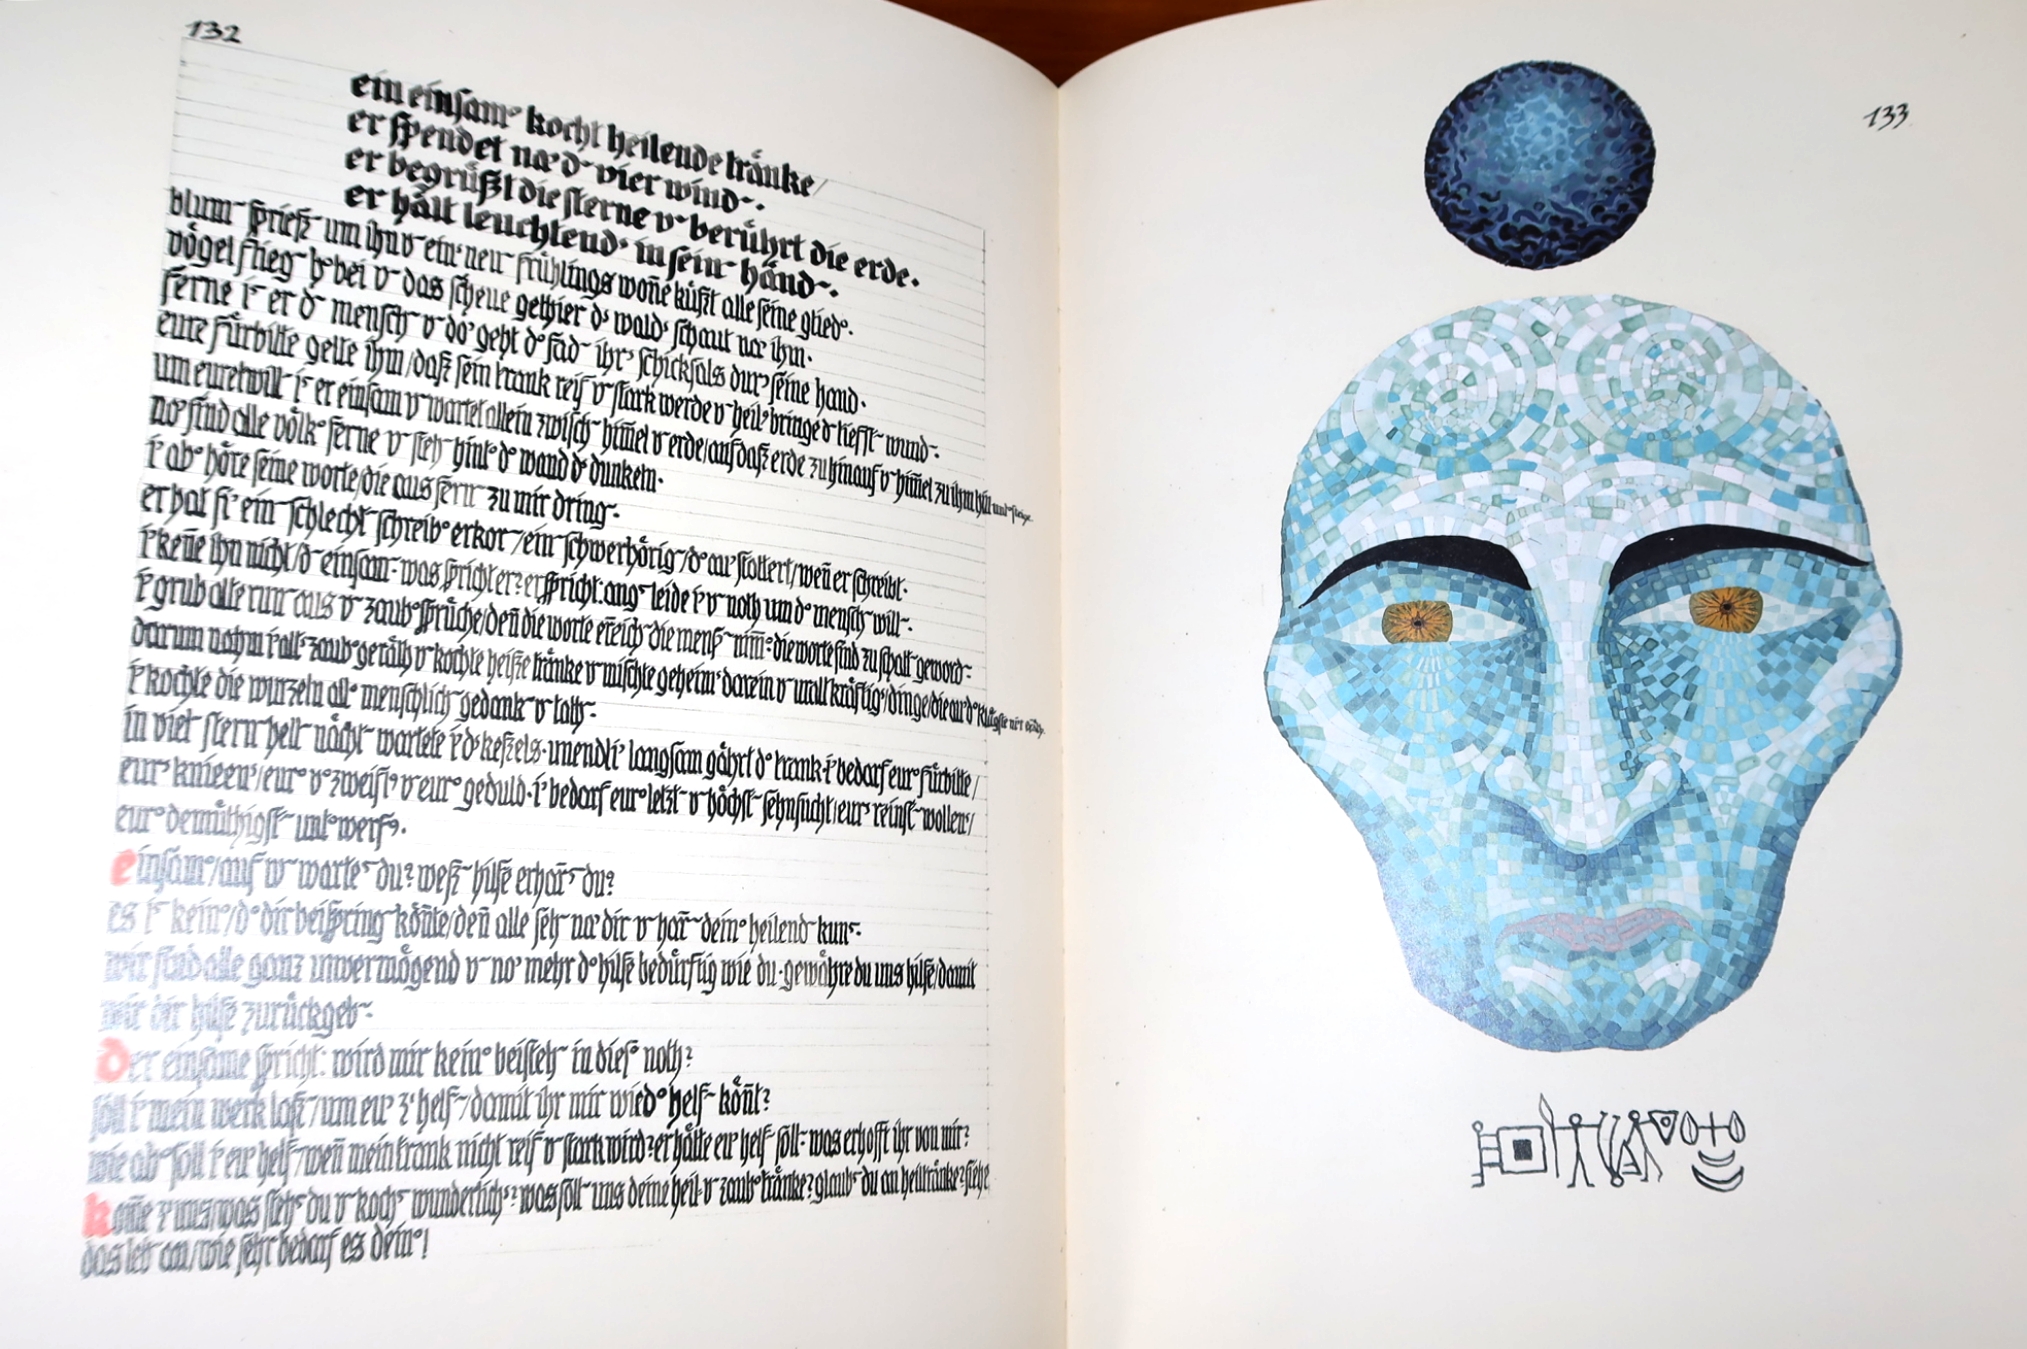 132
ein einſam° kocht heilende tränke/
er ſpendet na' d~ vier wind~.
er begrüßt die ſterne v~ berührt die erde.
er hält leuchtend' in ſein~ händ~.
blum~ ſprieß~ um ihn v~ ein' neu~ frühlings woñe küßt alle ſeine glied°.
vögel flieg~ h°bei v~ das ſcheue gethier d' wald' ſchaut na' ihm.
ferne i~ er d~ menſch~ v~ do' geht d° fad~ ihr' ſchickſals dur' ſeine hand.
eure fürbitte gelte ihm/daß ſein trank reif v~ ſtark werde v~ heil' bringe d~ tiefſt~ wund~.
um euretwill~ i~ er einſam v~ wartet allein zwiſch~ him̄el v~ erde/auf daß erde zu ihm hinauf v~ him̄el zu ihm
no' ſind alle völk° ferne v~ ſteh~ hint° d° wand d° dunkeln.
i' ab° höre ſeine worte/die aus fern~ zu mir dring~.
er hat ſi' ein~ ſchlecht~ ſchreib° erkor~/ein~ ſchwerhörig~/d° au' ſtottert/weñ er ſchreibt.
i' keñe ihn nicht/d~ einſam~. was ſpricht er? er ſpricht: ang' leide i' v~ noth um d° menſch~ will~.
i' grub alte run~ aus v~ zaub°ſprüche/deñ die worte er̄eich~ die menſch~ nim̄°. die worte ſind zu ſchatt~ geword~.
darum nahm i' alt' zaub°geräth v~ kochte heiße tränke v~ miſchte geheim' darein v~ uraltkräftig'/dinge/die au' d° klügſte nit
i' kochte die wurzeln all° menſchlich~ gedank~ v~ tath~.
in viel ſternhell~ nächt~ wartete i' d' keßels. unendli' langſam gährt d° trank. i' bedarf eur° fürbitte/
eur' knieen'/eur° v°zweifl' v~ eur° geduld. i' bedarf eur° letzt~ v~ höchſt~ ſehnſucht/eur' reinſt~ wollen'/
eur° demüthigſt~ unt°werf'.
einſam°/auf w~ warte' du? weß~ hilfe erhar' du?
es i~ kein°/d° dir beiſpring~ köñte/deñ alle ſeh~ na' dir v~ har~ dein° heilend~ kun'.
wir ſind alle ganz unvermögend v~ no' mehr d° hilfe bedürftig wie du. gewähre du uns hilfe/damit
wir dir hilfe zurückgeb~.
der einſame ſpricht: wird mir kein° beiſteh~ in dieſ° noth?
ſoll i' mein werk laß~/um eu' z' helf~/damit ihr mir wied° helf~ köñt?
wie ab° ſoll i' eu' helf~/weñ mein trank nicht reif v~ ſtark wird? er hätte eu' helf~ ſoll~. was erhofft ihr von mir?
koñe z' uns/was ſteh' du v~ koch' wunderlich'? was ſoll~ uns deine heil- v~ zaub°tränke? glaub' du an heiltränke? ſiehe
das leb~ an/wie ſehr bedarf es dein°!
133